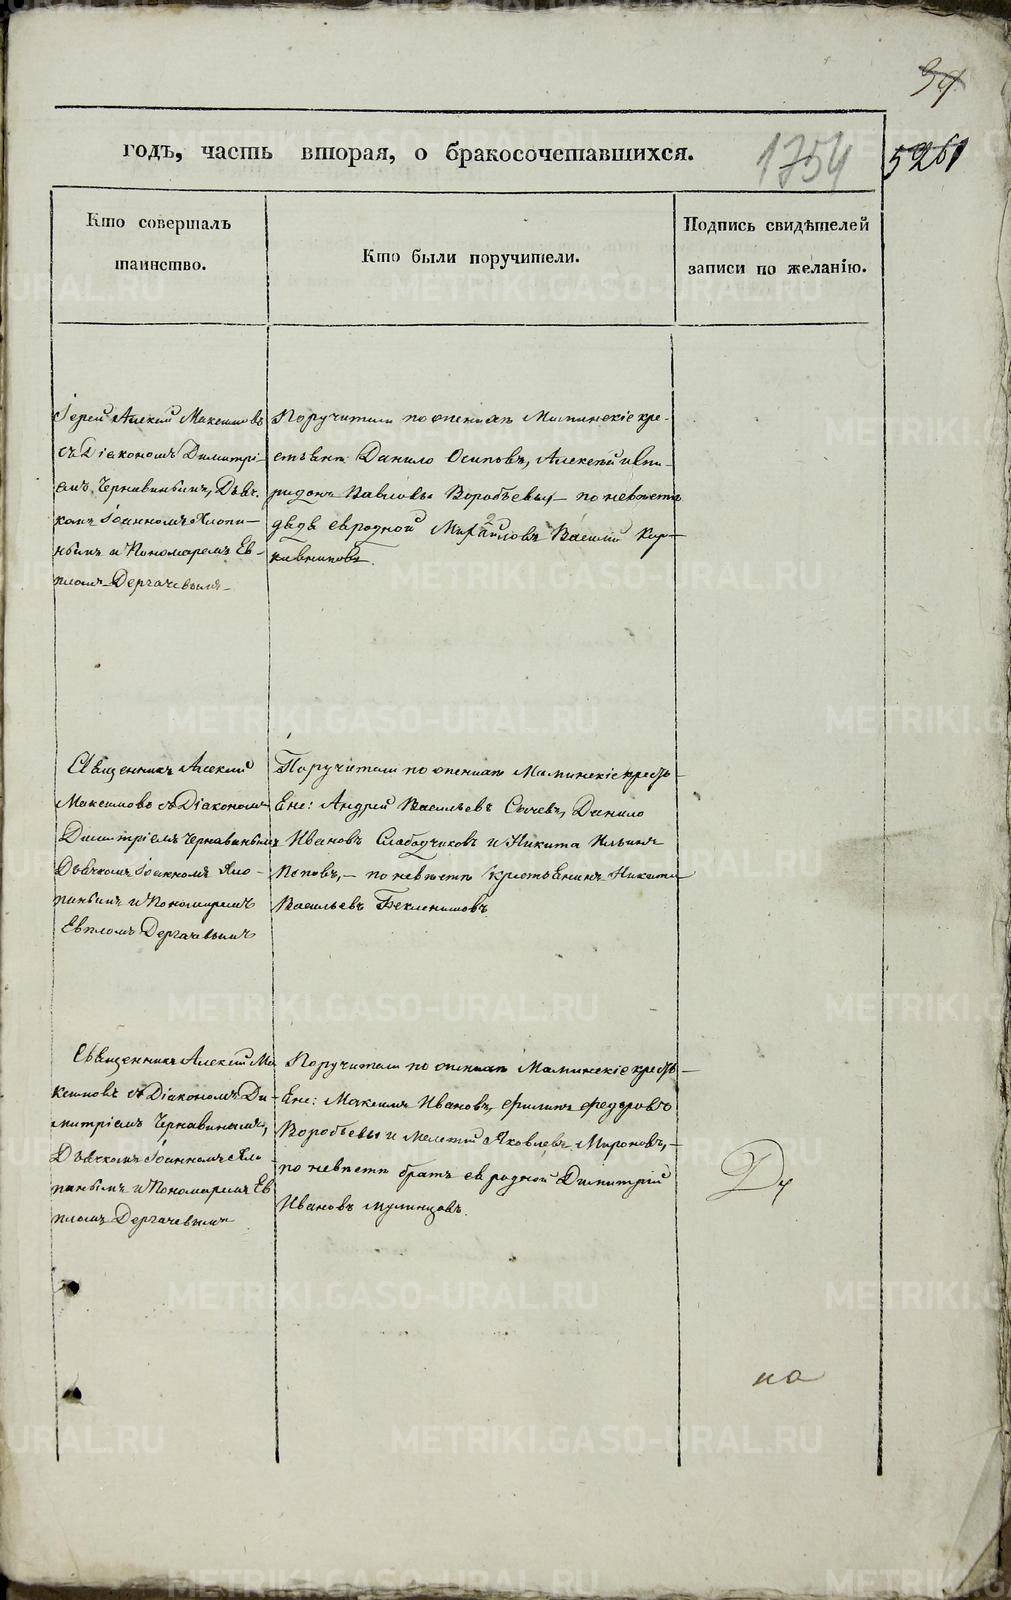 34
годъ, часть вторая, о бракосочетавшихся.
1754
5261
Кто совершалъ
таинство.
Кто были поручители.
Подпись свидѣтелей
записи по желанію.
Іерей Алексій Максимовъ
съ Діакономъ Димитрі-
емъ Чернавинымъ, Дьяч-
комъ Іоанномъ Ляпи-
нымъ и Пономаремъ Ев-
пломъ Дергачевымъ
Поручители по женихѣ Маминскіе кре-
стьяне Данило Осиповъ, Алексѣй и Спи-
ридонъ Павловы Воробьевы, – по невѣстѣ
дядя ея родной Михайловъ Василій Кор-
кавниковъ
Священникъ Алексій
Максимовъ съ Діакономъ
Димитріемъ Чернавинымъ
Дьячкомъ Іоанномъ Ляпи-
нымъ и Пономаремъ
Евпломъ Дергачевымъ
Поручители по женихѣ Маминскіе кресть-
яне: Андрей Васильевъ Сычевъ, Данило
Ивановъ Слободчиковъ и Никита Ильинъ
Поповъ, – по невѣстѣ крестьянинъ Никита
Васильевъ Беклемишовъ
Священникъ Алексій Ма
ксимовъ съ Діакономъ Ди-
митріемъ Чернавинымъ,
Дьячкомъ Іоанномъ Ля-
пинымъ и Пономаремъ Ев
пломъ Дергачевымъ
Поручители по женихѣ Маминскіе кресть-
яне: Максимъ Ивановъ, Филипъ Федоровъ
Воробьевы и Мелетій Яковлевъ Мироновъ, –
по невѣстѣ братъ ея родной Димитрій
Ивановъ Мулинцовъ.
Ду
на
METRIKI.GASO-URAL.RU